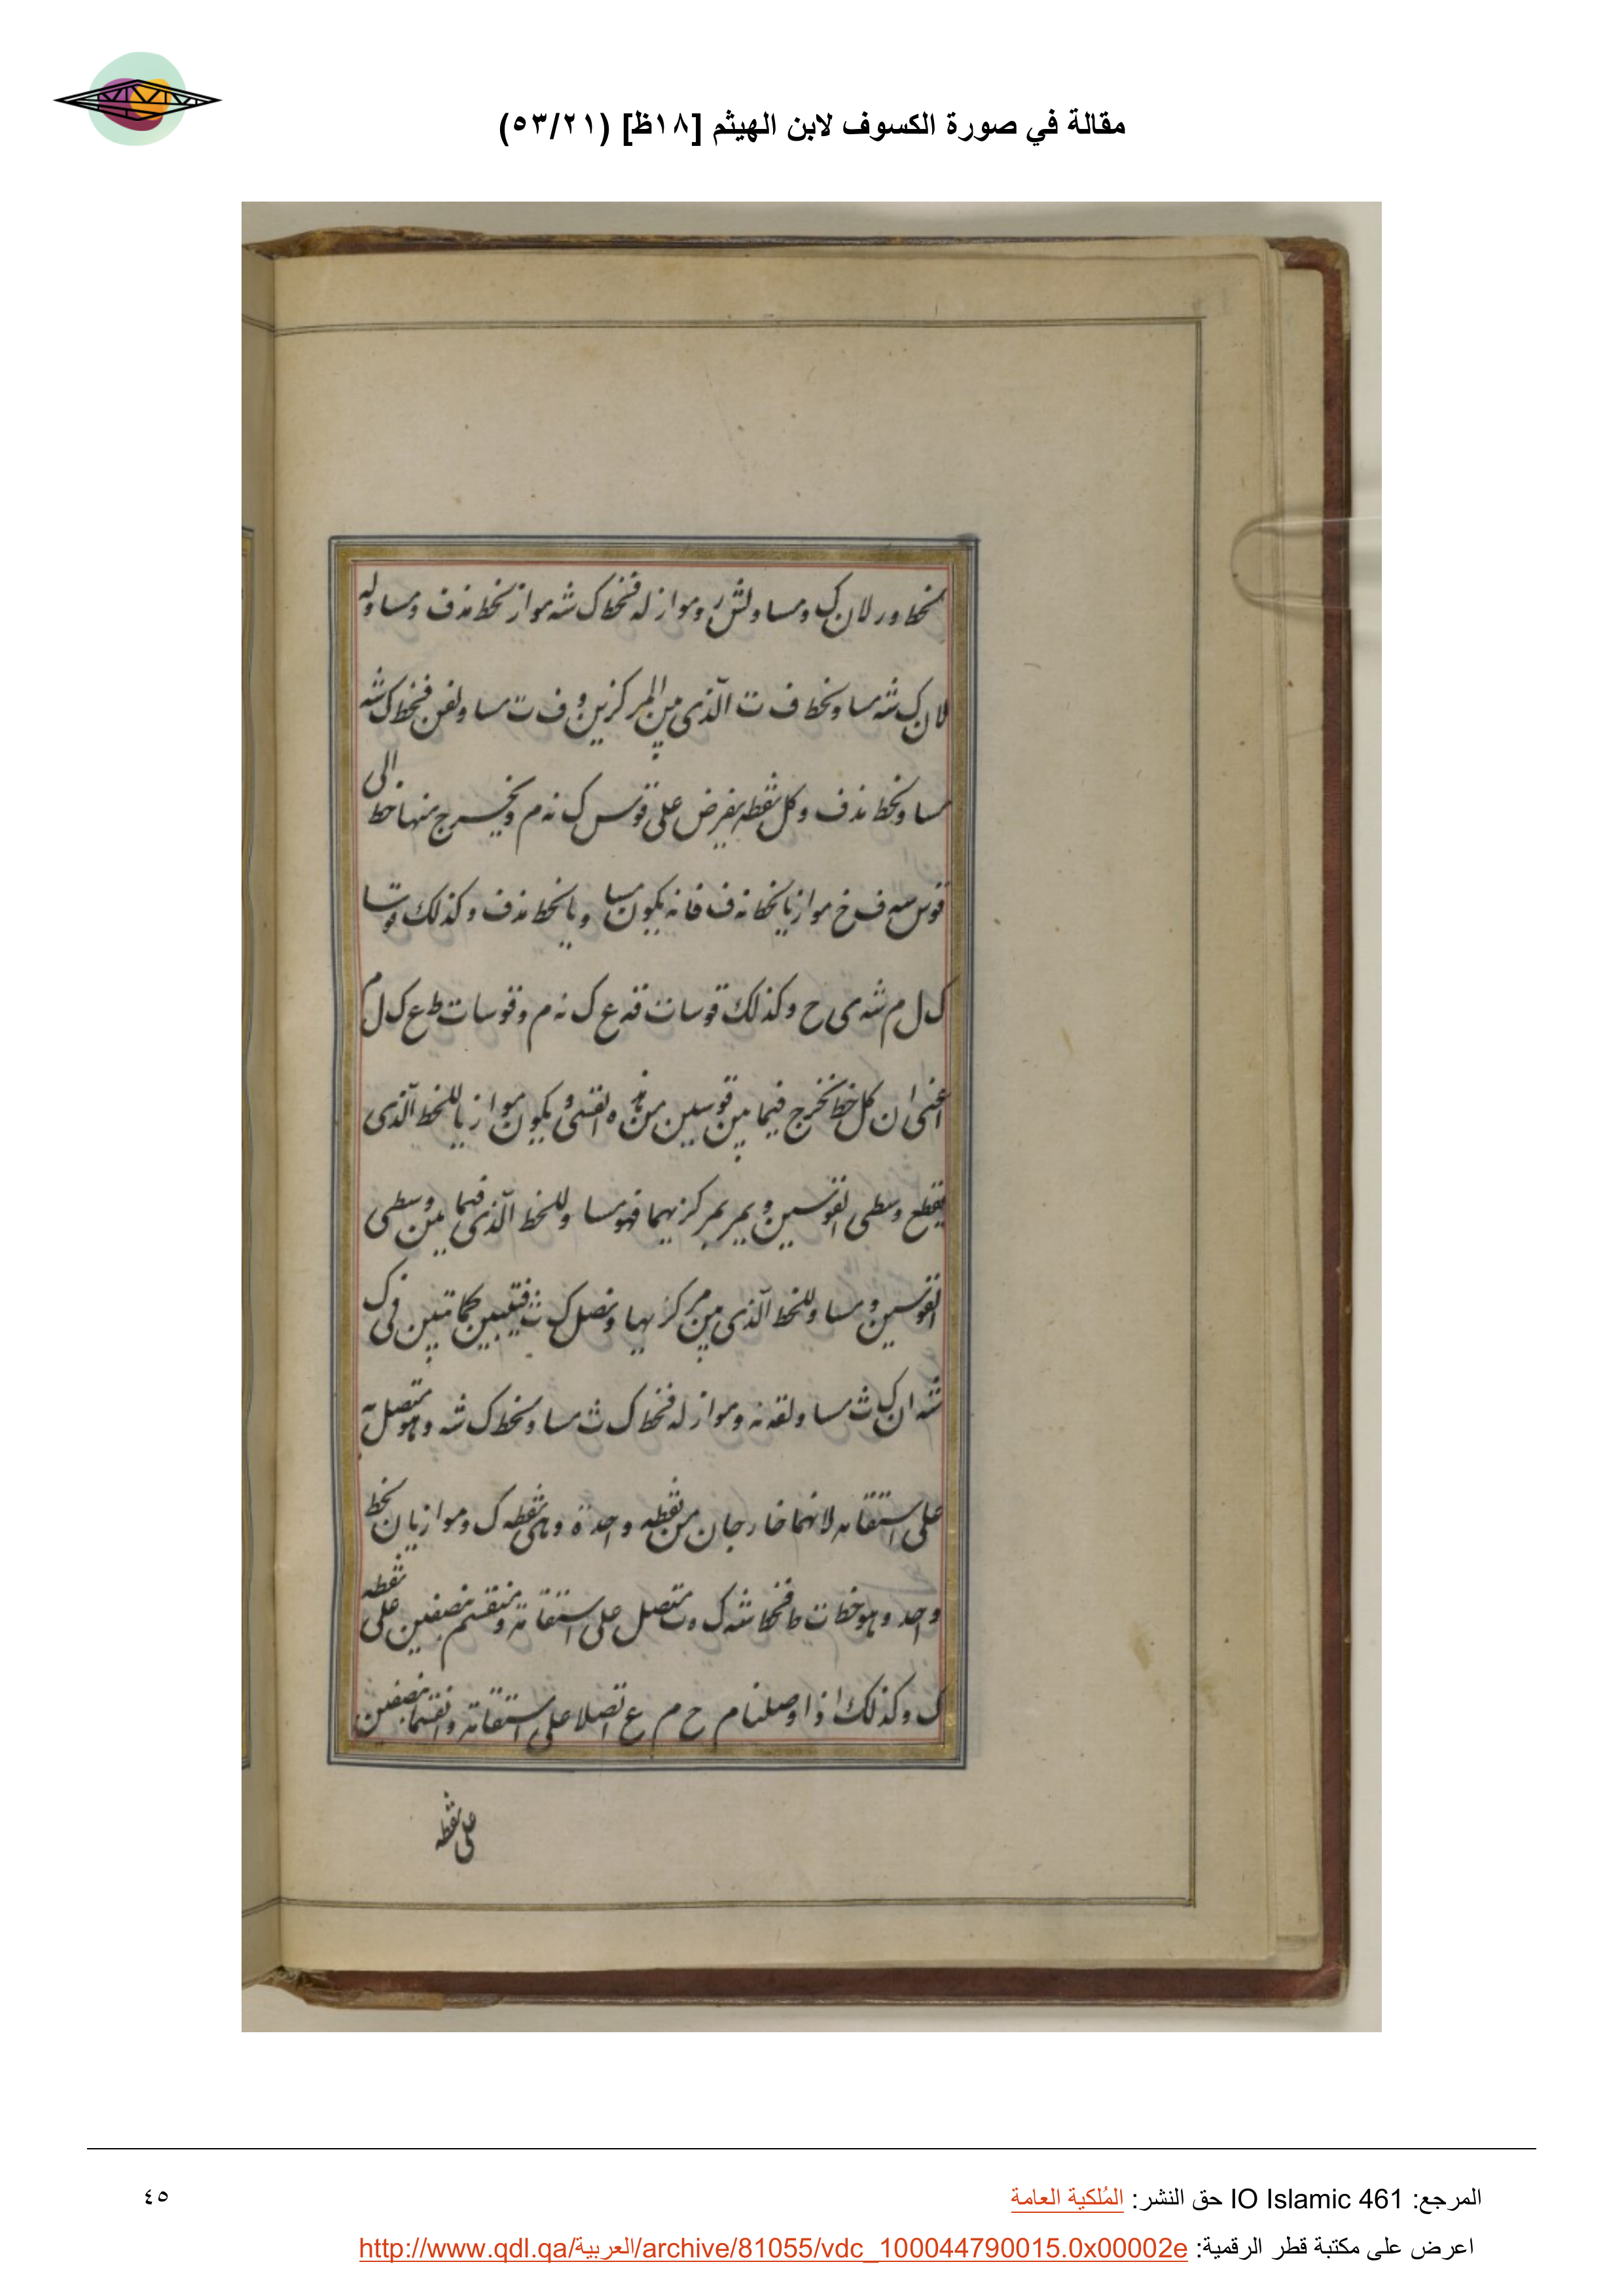 مقالة في صورة الكسوف لابن الهيثم [١٨ظ] (٥٣/٢١)
لان ك ومساو وموازله فخط ك شه مواز لخط ند ف ومساوله
لان ك شه مساو لخط ف ت الذى بين المركزين و ف ت مساو فخط ك شه
مساو لخط ند ف وكل نقطه يفرض على قوس ك نه م ويخرج منها خط الى
قوس ف خ موازيا لخط نه ف فانه يكون مساويا لخط ند ف وكذلك قوسا
ك ل م شه ى ح وكذلك قوسا ت قه ع ك نه م وقوسا ت ط ع ك ل م
اعنى ان كل خط يخرج فيما بين قوسين من هذه القسى ويكون موازيا للخط الذى
يقطع وسطى القوسين ويمر بمركزيهما فهو مساو للخط الذى فيما بين وسطى
القوسين ومساو للخط الذى بين مركزيها ونصل ك ث فيتبين كما تبين فى ك
شه ان ك ث مساو لقه نه ومواز له فخط ك ث مساو لخط ك شه وهو متصل به
على استقامه لانهما خارجان من نقطه واحدة وهى نقطه ك وموازيان لخط
واحد وهو خط ت ط فخط شه ك ث متصل على استقامة ومنقسم بنصفين على نقطه
ك وكذلك اذا وصلنا م ح م ع اتصلا على استقامة وانقسما بنصفين
على نقطه
المرجع: IO Islamic 461 حق النشر: المُلكية العامة
٤٥
اعرض على مكتبة قطر الرقمية: http://www.qdl.qa/العربية/archive/81055/vdc_100044790015.0x00002e